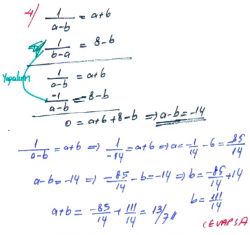 4/ 1/(a-b) = a+6
1/(b-a) = 8-b
Yapalım
1/(a-b) = a+6
-1/(a-b) = 8-b
0 = a+6+8-b ⇒ a-b = -14
1/(a-b) = a+6 ⇒ 1/-14 = a+6 ⇒ a = -1/14 - 6 = -85/14
a-b = -14 ⇒ -85/14 - b = -14 ⇒ b = -85/14 + 14
b = 111/14
a+b = -85/14 + 111/14 = 13/7